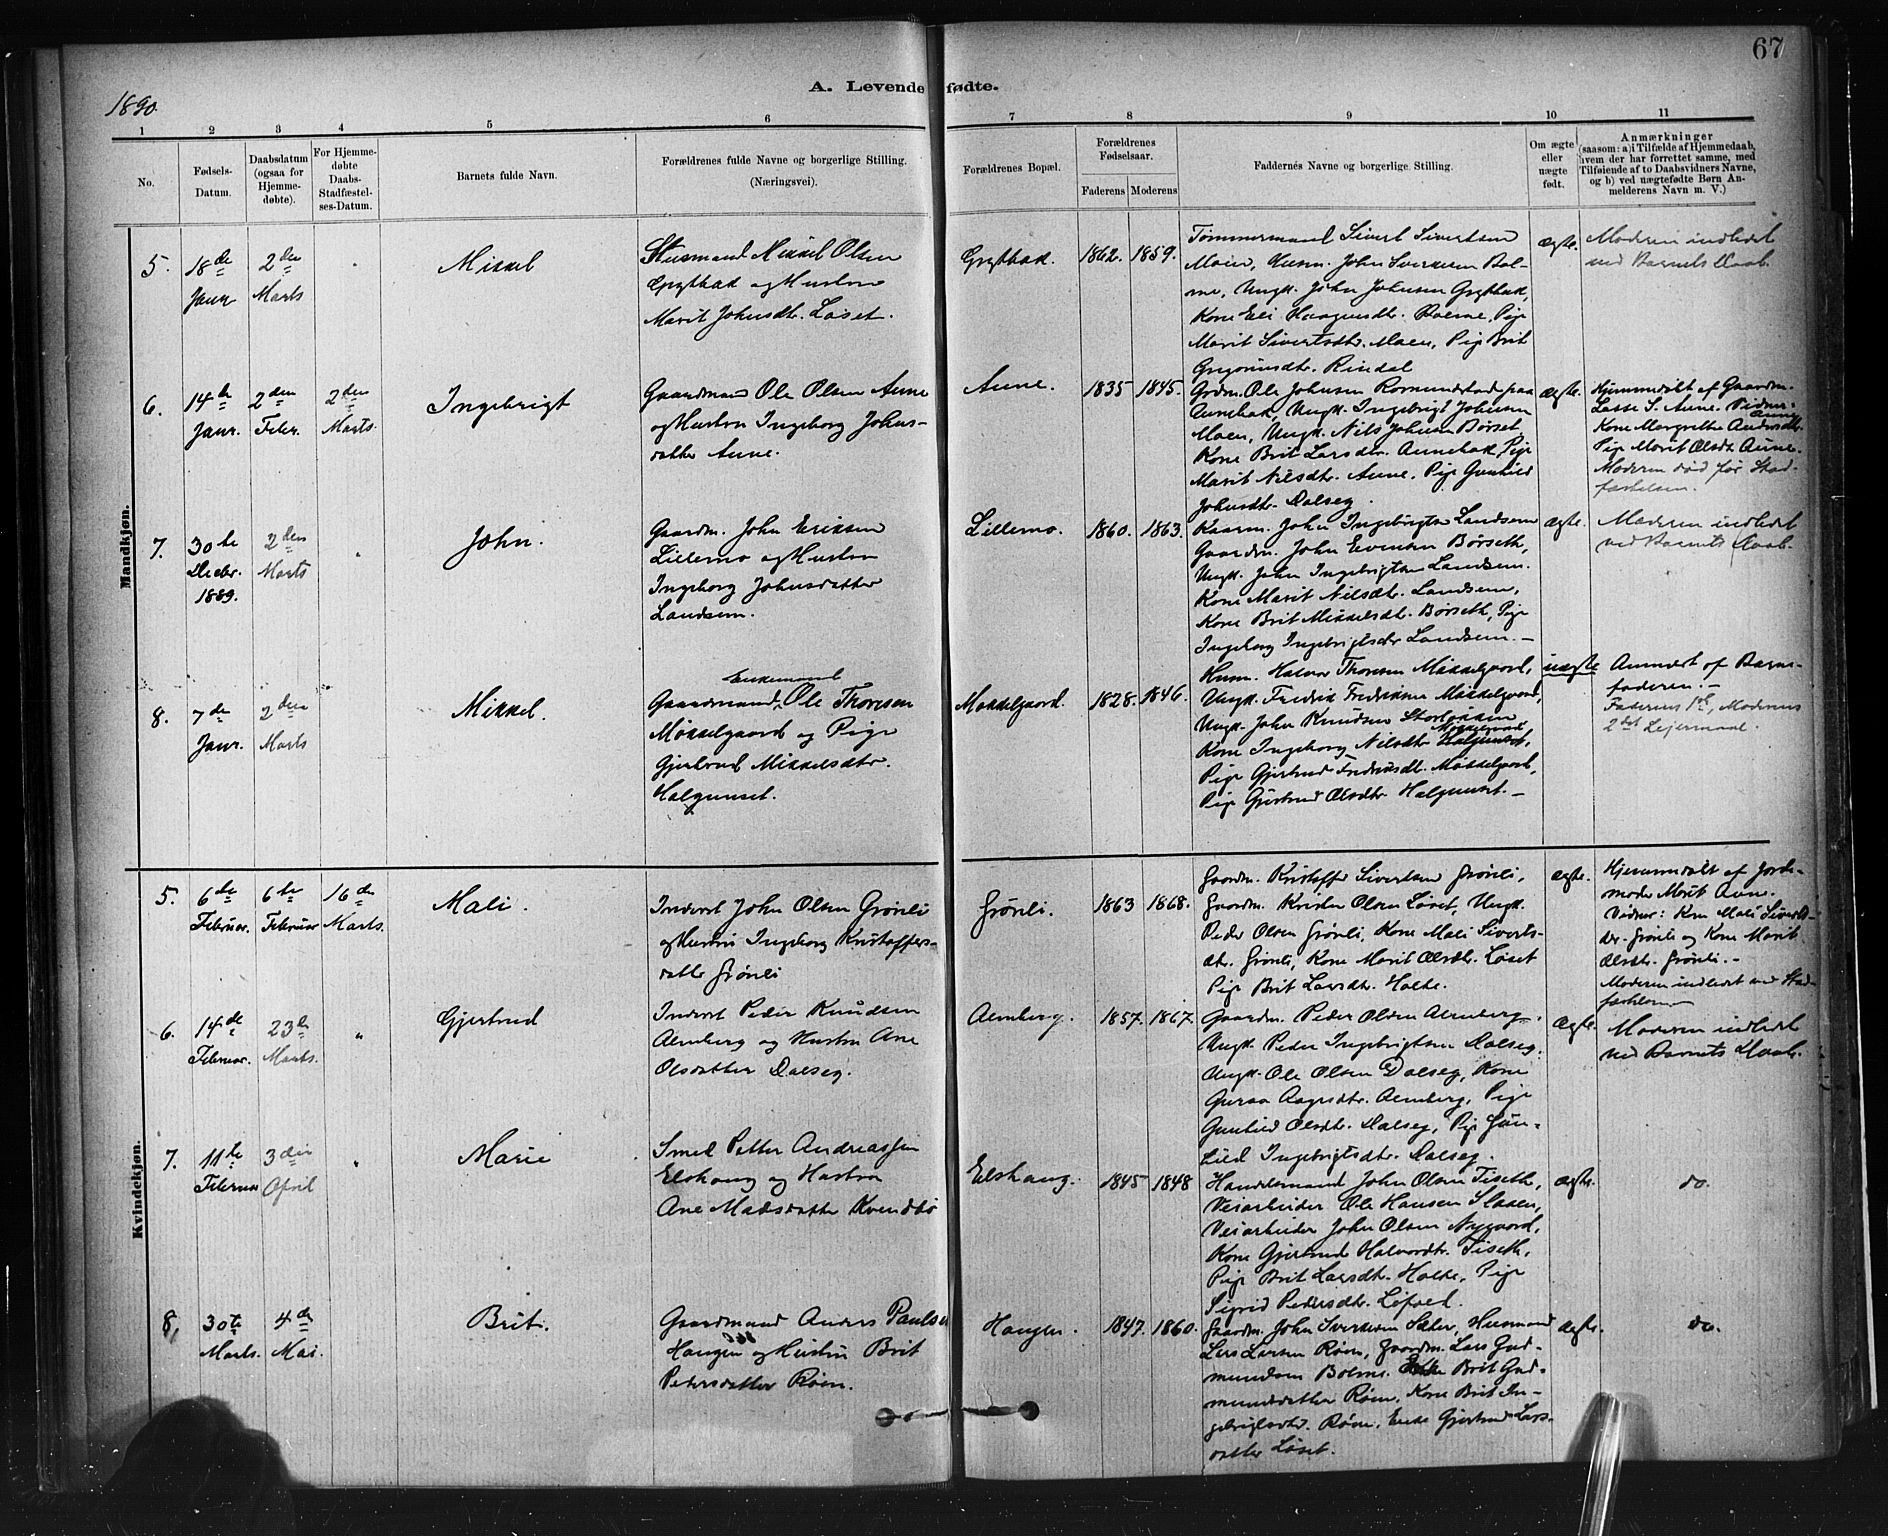 67
1890.
A. Levende fødte.
1 2 3 4 5 6 7 8 9 10 11
No.
Fødsels-Datum.
Daabsdatum (ogsaa for Hjemmedøbte).
For Hjemmedøbte Daabs-Stadfæstelses-Datum.
Barnets fulde Navn.
Forældrenes fulde Navne og borgerlige Stilling. (Næringsvei).
Forældrenes Bopæl.
Forældrenes Fødselsaar.
Faderens Moderens
Faddernes Navne og borgerlige Stilling.
Om ægte eller uægte født.
Anmærkninger (saasom: a) i Tilfælde af Hjemmedaab, hvem der har forrettet samme, med Tilføiende af to Daabsvidners Navne, og b) ved uægtefødte Børn Anmelderens Navn m. V.)
Mandkjøn.
5. 18de Janr 2den Marts
Mikkel
Husmand Mikkel Olsen
Grytbak og Hustru
Marit Johnsdtr. Løset.
Grytbak. 1862. 1859.
Tømmermand Sivert Sivertsen
Moen, Husm. John Sverkesen Bol-
me, Ungk. John Johnsen Grytbak,
Kone Eli Haagensdtr. Bolme, Pige
Marit Sivertsdtr. Moen, Pige Brit
Rindal
ægte.
Moderen indledet
ved Barnets Daab.
6. 14de Janr. 2den Febr. 2den Marts.
Ingebrigt
Gaardmand Ole Olsen Aune
og Hustru Ingeborg Johns-
datter Aune.
Aune. 1835 1845.
Grdm. Ole Johnsen Romundstad paa
Aunebak, Ungk. Ingebrigt Johnsen
Moen, Ungk. Nils Johnsen Børset
Kone Brit Larsdtr. Aunebak, Pige
Marit Nilsdtr. Aune, Pige Gunhild
Johnsdtr. Dalseg.
ægte.
Hjemmedøbt af Gaardm.
Lasse S. Aune. Vidner:
Kone Margrethe Andersdtr. Aune
Pige Marit Olsdt Aune.
Moderen død før Stad-
fæstelsen.
7. 30te Decbr. 1889. 2den Marts
John.
Gaardm. John Eriksen
Lillemo og Hustru
Ingeborg Johnsdatter
Landsem.
Lillemo. 1860. 1863.
Kaarm. John Ingebrigtsen Landsem
Gaardm. John Evensen Børseth,
Ungk. John Ingebrigtsen Landsem.
Kone Marit Nilsdtr. Landsem,
Kone Brit Mikkelsdtr. Børseth, Pige
Ingeborg Ingebrigtsdtr Landsem. —
ægte.
Moderen indledet
ved Barnets Daab.
8. 7de Janr. 2den Marts
Mikkel.
Enkemand
Gaardmand, Ole Thoresen
Møkkelgaard og Pige
Gjertrud Mikkelsdtr.
Halgunset.
Møkkelgaard. 1828. 1846.
Husm. Halvor Thoresen Møkkelgaard,
Ungk. Fredrik Fredriksen Møkkelgaard,
Ungk. John Knudsen Storløkken
Møkkelgaard
Kone Ingeborg Nilsdtr Halgunset,
Pige Gjertrud Fredriksdt. Møkkelgaard,
Pige Gjertrud Olsdtr. Halgunset. —
uægte
Anmeldt af Barne-
faderen. —
Faderens 1ste, Moderens
2det Lejermaal.
Kvindekjøn.
5. 6te Februar. 6te Februar 16de Marts.
Mali.
Inderst John Olsen Grønli
og Hustru Ingeborg Kristoffers-
datter Grønli
Grønli. 1863 1868.
Gaardm. Kristoffer Sivertsen Grønli,
Gaardm. Olsen Løset, Ungk.
Peder Olsen Grønli, Kone Mali Siverts-
dtr. Grønli, Kone Marit Olsdtr. Løset
Pige Brit Larsdtr. Holte.
ægte.
Hjemmedøbt af Jorde-
moder Marit Aune.
Vidner: Kone Mali Siverts-
dtr. Grønli og Kone Marit
Olsdtr. Grønli. —
Moderen indledet ved Stad-
fæstelsen
6. 14de Februar. 23de Marts. "
Gjertrud
Inderst Peder Knudsen
Almberg og Hustru Ane
Olsdatter Dalseg.
Almberg. 1857. 1867.
Gaardm. Peder Olsen Almberg.
Ungk. Peder Ingebrigtsen Dalseg.
Ungk. Ole Olsen Dalseg, Kone
Guraa Aagesdtr. Almberg, Pige
Gunhild Olsdtr. Dalseg, Pige Gun-
hild Ingebrigtsdtr. Dalseg.
ægte.
Moderen indledet
ved Barnets Daab.
7. 11te Februar 3die April "
Marie
Smed Petter Andreassen
Elshaug og Hustru
Ane Madsdatter Kvendbø
Elshaug. 1845 1848
Handelsmand John Olsen Tiseth,
Veiarbeider Ole Hansen Slaaen,
Veiarbeider John Olsen Nygaard,
Kone Gjertrud Halvordtr. Tiseth,
Pige Brit Larsdtr. Holte, Pige
Sigrid Pedersdtr. Løfset.
ægte.
do.
8, 30te Marts. 4de Mai.
Brit.
Gaardmand Anders Paulsen
Haugen og Hustru Brit
Pedersdatter Røen.
Haugen. 1847. 1860.
Gaardm. John Sverkesen Sæter, Husmand
Lars Larsen Røen, Gaardm. Lars Gud-
mundsen Bolme. Brit Gud-
mundsdatter Røen, Kone Brit In-
gebrigtsdtr. Røen, Enke Gjertrud Lars-
datter Løset.
ægte.
do.